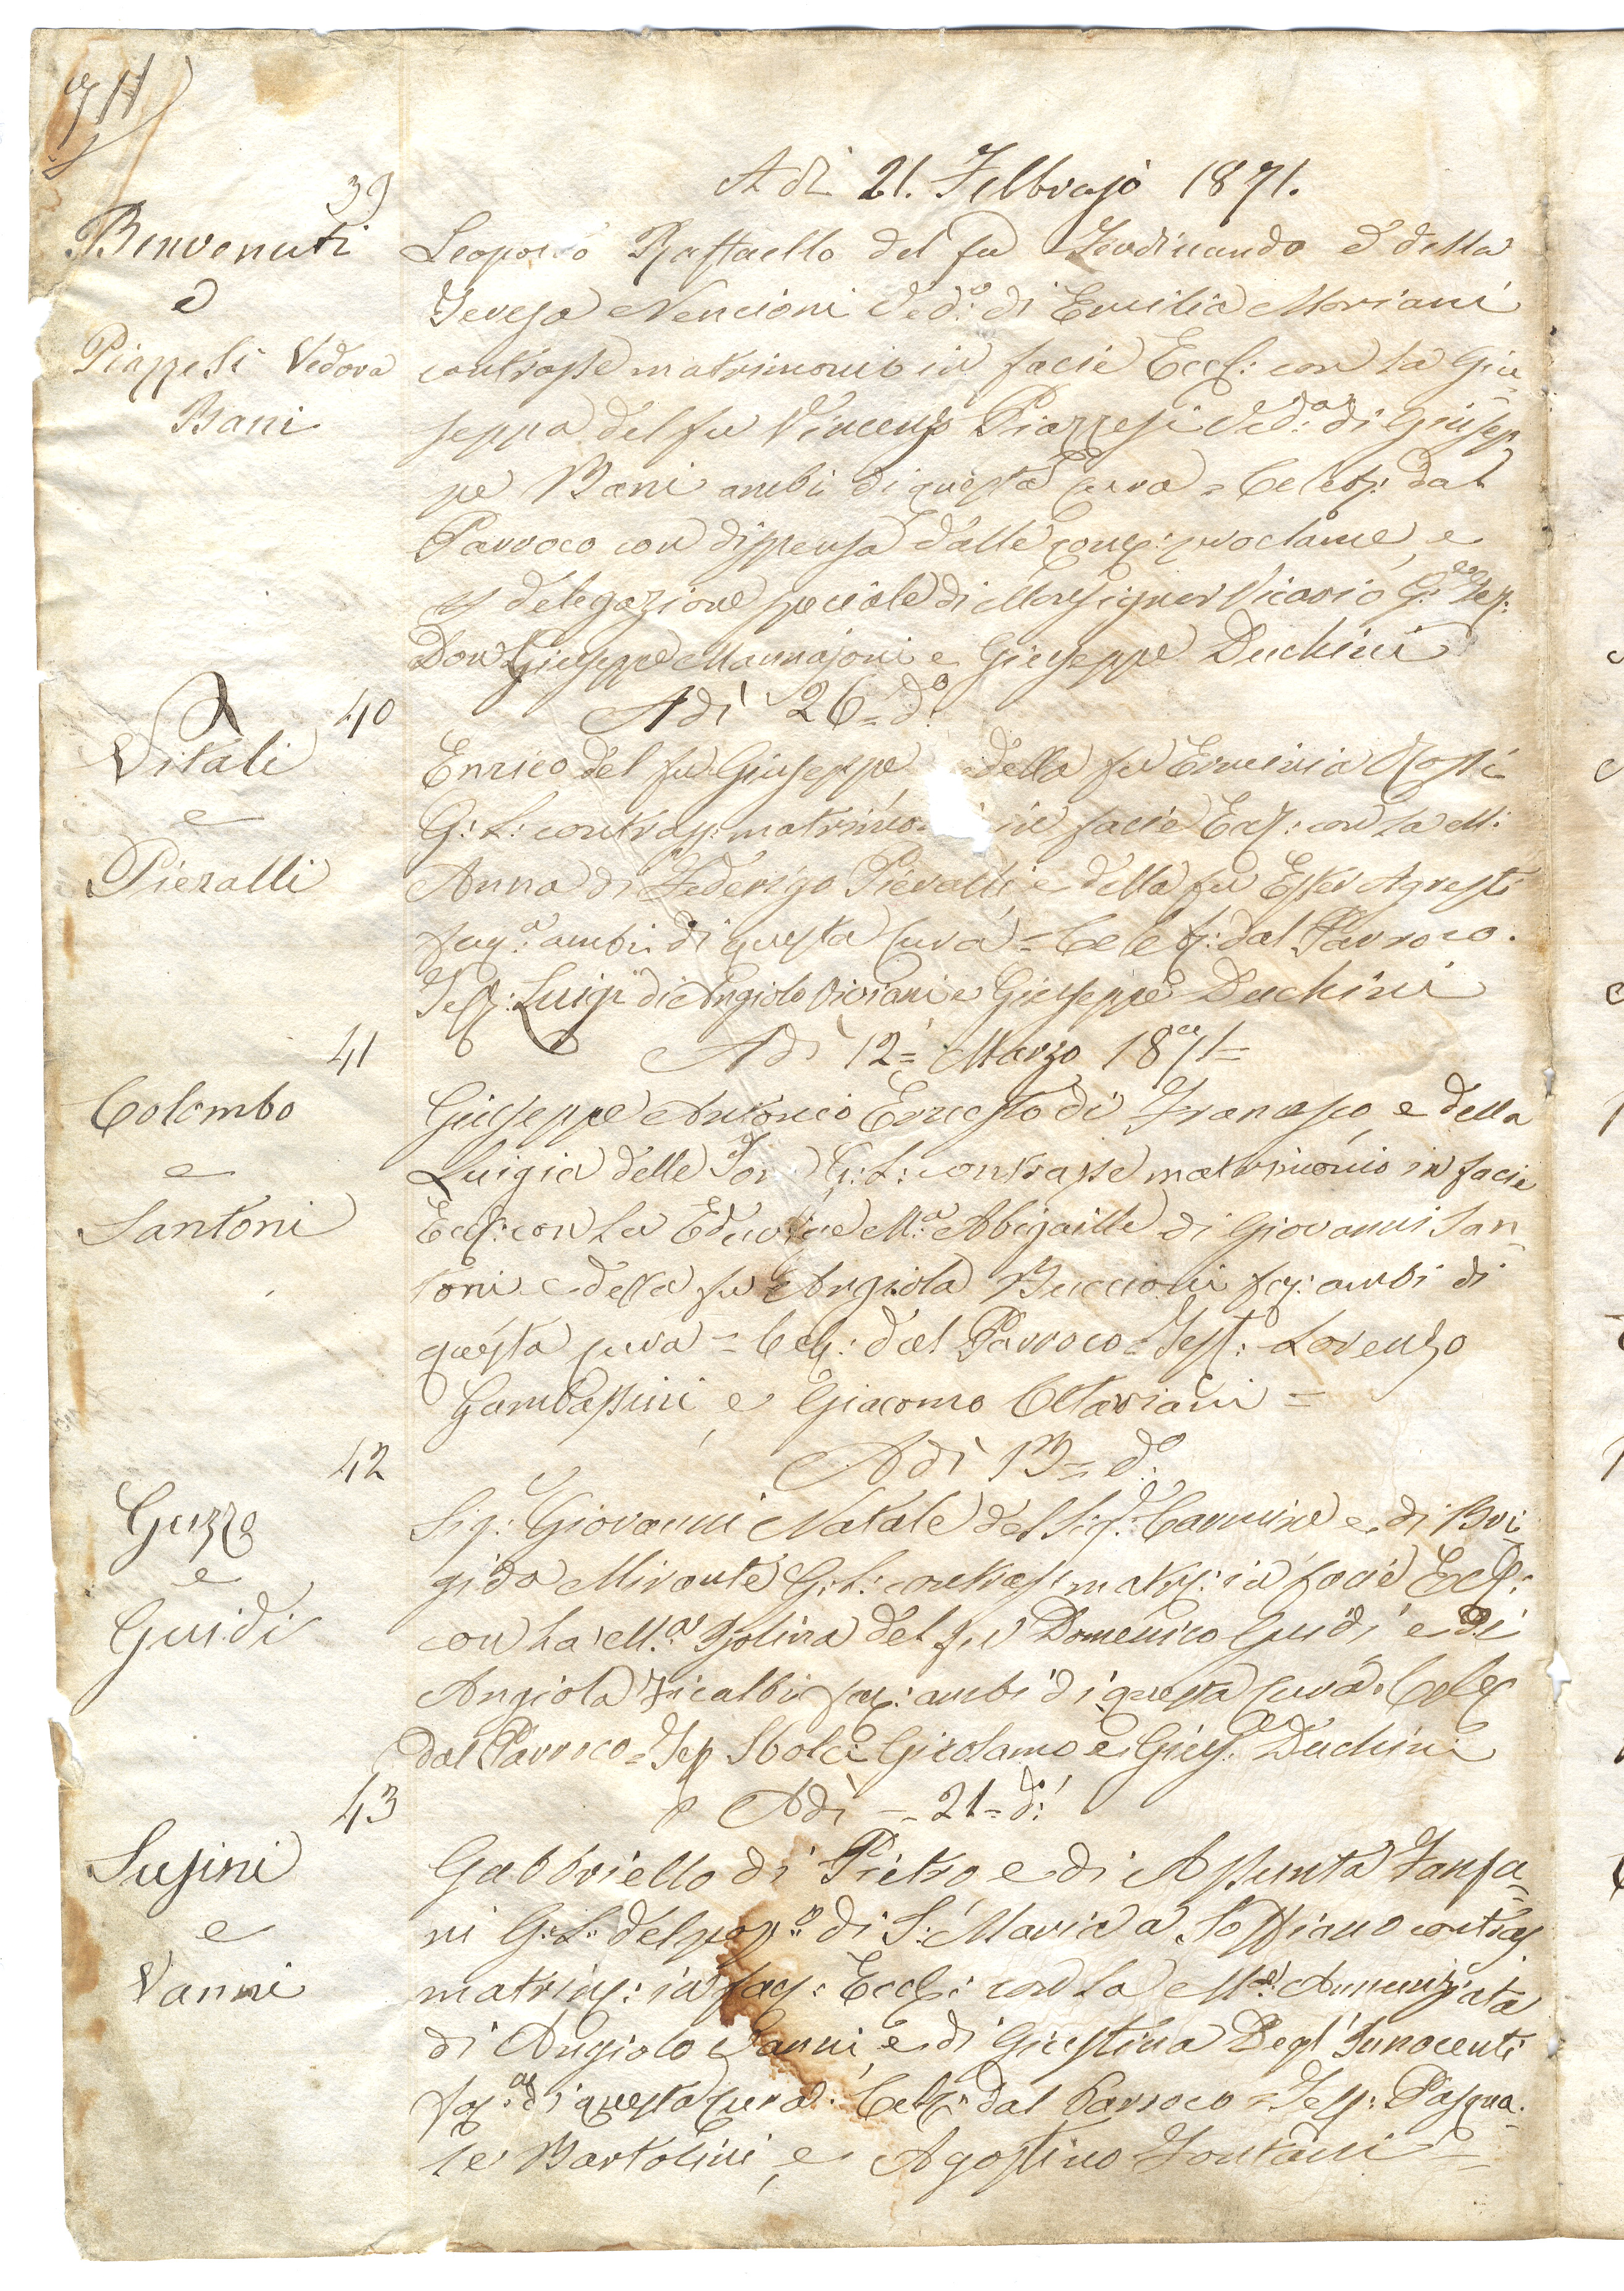 71
39
A dì 21. Febbrajo 1871.
Benvenuti
e
Piazzesi Vedova
Bani
Leopoldo Raffaello del fu Ferdinando e della
Teresa Nencioni Ved.º di Emilia Mariani
contrasse matrimonio in facie Eccl: con la Giu-
seppa del fu Vincenzo Piazzesi Ved.ª di Giusep-
pe Bani ambi di questa Cura = Celeb: dal
Parroco con dispensa dalle cons: proclame, e
delegazione speciale di Monsignor Vicario G.le Tes:
Don Giuseppe Mannajoni e Giuseppe Duchini
40
Adì 26= d.º
Vitali
e
Pieralli
Enrico del fu Giuseppe della fu Erminia Rossi
G: L: contrass: matrimo in facie Eccl: con la M:
Anna di Federigo Pieralli e della fu Ester Agresti
fanc.ª ambi di questa Cura = Celeb: dal Parroco.
Test: Luigi di Angiolo Viviani e Giuseppe Duchini
41
Adì 12= Marzo 1871=
Colombo
e
Santoni
Giuseppe Antonio Ernesto di Francesco e della
Luigia delle Tor G: L: contrasse matrimonio in facie
Eccl: con la M.ª Abigaille di Giovanni San-
toni e della fu Angiola Buccioni fan: ambi di
questa cura = Cele: dal Parroco = Test: Lorenzo
Gambassini e Giacomo Ottaviani =
42
Adì 13= d.º
Guzzo
e
Guidi
Sig: Giovanni Natale del Sig.r Carmine e di Bri-
gida Mirante G: L: contras: matri: in facie Eccl:
con la M.ª Isolina del fu Domenico Guidi e di
Angiola Ficalbi fan: ambi di questa Cura. Celeb
dal Parroco = Tes Stolci Girolamo e Gius.e Duchini
43
Adì = 21= d.º
Susini
e
Vanni
Gabbriello di Pietro e di Assunta Fanfa-
ni G: L: del pop.º di S: Maria a Soffiano contras
matrim: in fac: Eccl: con la M.ª Annunziata
di Angiolo Vanni e di Giustina Degl'Innocenti
fan.ª di questa Cura. Celeb: dal Parroco = Tes: Pasqua-
le Bartolini e Agostino Fontani =